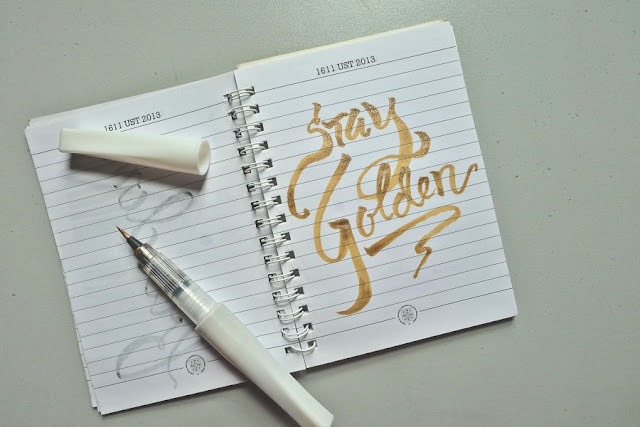 1611 UST 2013
1611 UST 2013
Stay
Golden